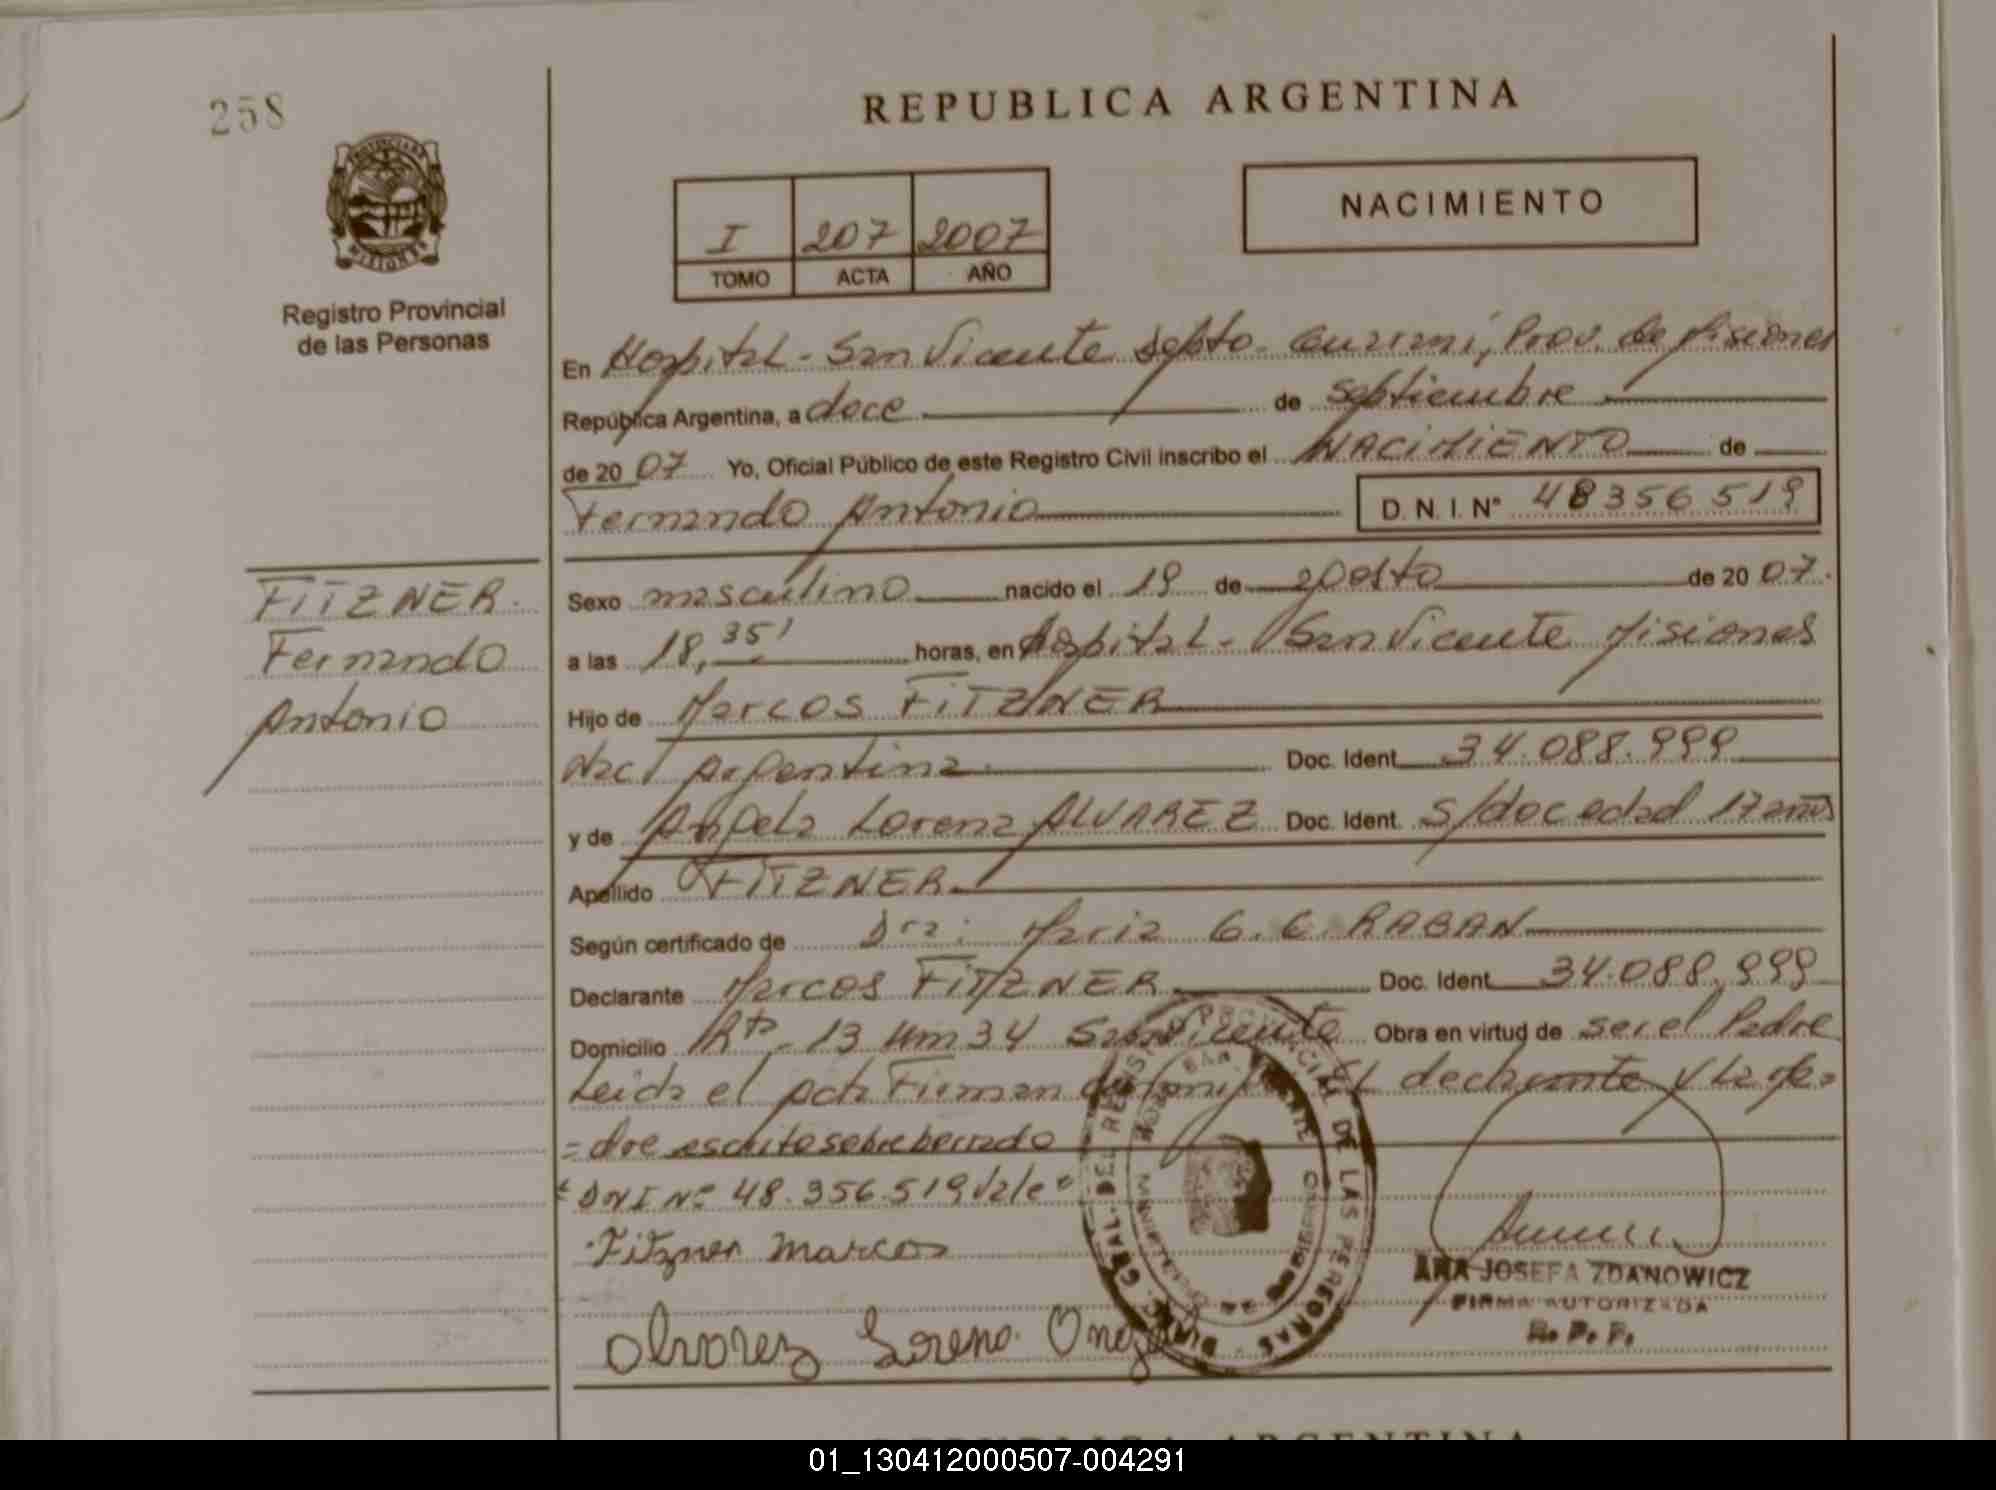 258
REPUBLICA ARGENTINA
PROVINCIA DE MISIONES
Registro Provincial
de las Personas
I 207 2007
TOMO ACTA AÑO
NACIMIENTO
En Hospital - San Vicente Depto. Guaraní, Prov. de Misiones
República Argentina, a doce de septiembre
de 2007 Yo, Oficial Público de este Registro Civil inscribo el NACIMIENTO de
Fernando Antonio D. N. I. N° 48356519
FITZNER.
Fernando
Antonio
Sexo masculino nacido el 19 de agosto de 2007.
a las 18,35' horas, en Hospital - San Vicente Misiones
Hijo de Marcos FITZNER
Nac. Argentina. Doc. Ident. 34.088.999
y de Angela Lorena ALVAREZ Doc. Ident. s/doc edad 17 años
Apellido FITZNER.
Según certificado de Dra. Maria G. C. RABAN
Declarante Marcos FITZNER Doc. Ident. 34.088.999
Domicilio Rta. 13 Km 34 San Vicente Obra en virtud de ser el Padre
Leida el acta Firman conmigo El declarante y La ma=
=dre escrito sobre borrado
"DNI Nº 48.356.519 Vale"
Fitzner Marcos
Alvarez Lorena Angela
DIREC. GRAL. DEL REGISTRO PROVINCIAL DE LAS PERSONAS
SAN VICENTE
ANA JOSEFA ZDANOWICZ
FIRMA AUTORIZADA
R. P. P.
REPUBLICA ARGENTINA
01_130412000507-004291